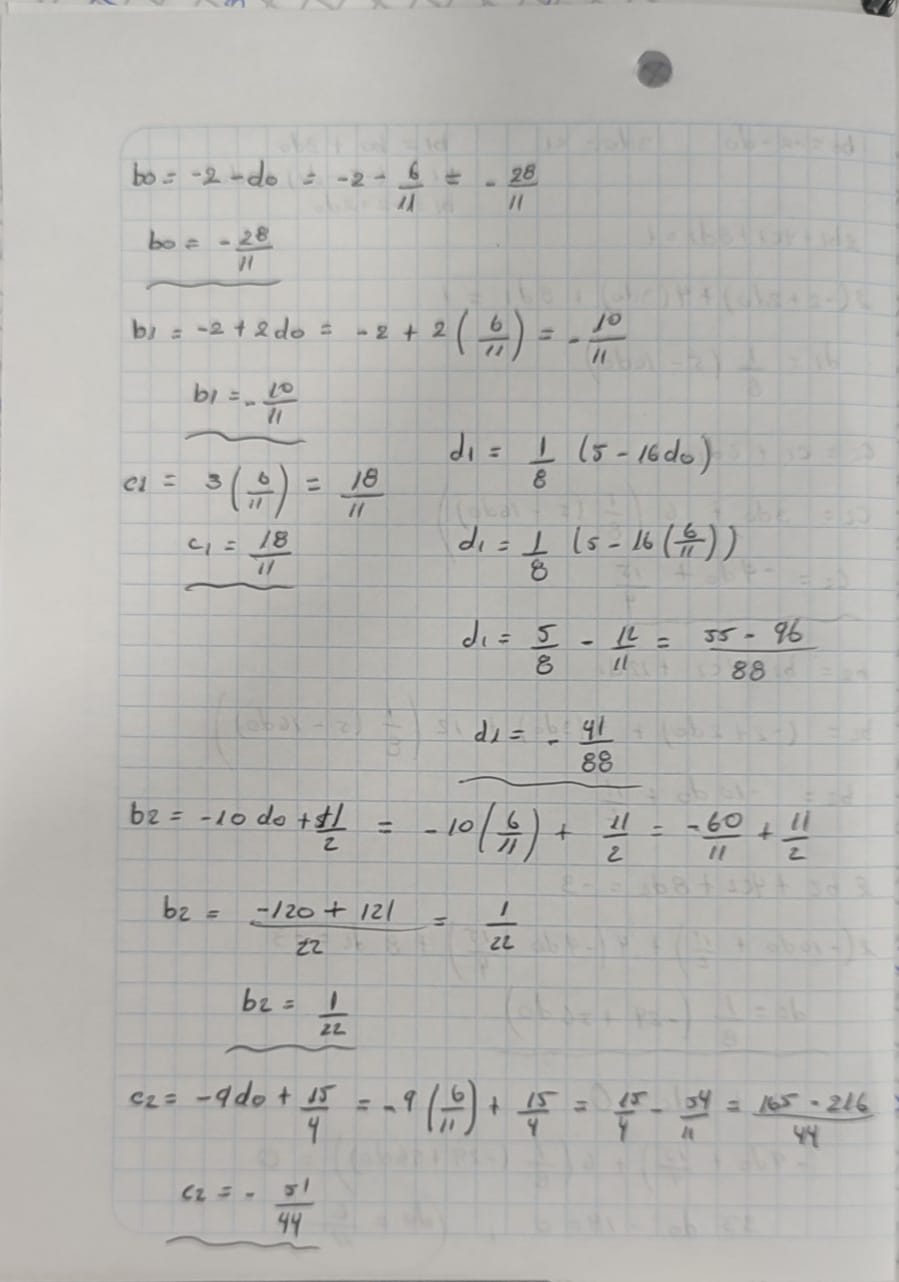 b0 = -2 - d0 = -2 - 6/11 = - 28/11
b0 = - 28/11
b1 = -2 + 2d0 = -2 + 2 (6/11) = - 10/11
b1 = - 10/11
d1 = 1/8 (5 - 16d0)
c1 = 3 (6/11) = 18/11
c1 = 18/11
d1 = 1/8 (5 - 16 (6/11))
d1 = 5/8 - 12/11 = 55 - 96/88
d1 = - 41/88
b2 = -10 d0 + 11/2 = -10 (6/11) + 11/2 = -60/11 + 11/2
b2 = -120 + 121/22 = 1/22
b2 = 1/22
c2 = -9d0 + 15/4 = -9 (6/11) + 15/4 = 15/4 - 54/11 = 165 - 216/44
c2 = - 51/44